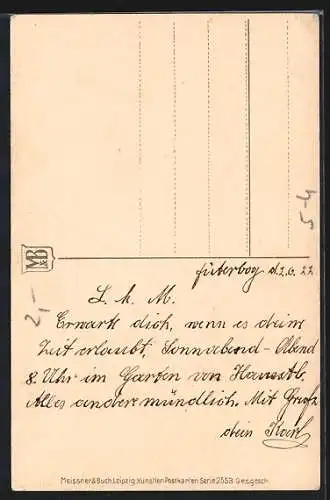 Jüterbog d 2.6.22
L. M.
Erwarte dich, wenn es deine
Zeit erlaubt, Sonnabend-Abend
8. Uhr im Garten von
Alles andere mündlich. Mit Gruß
dein Karl
M&B
2,-
5-4
Meissner & Buch, Leipzig, Künstler-Postkarten Serie 2553 Ges.gesch.